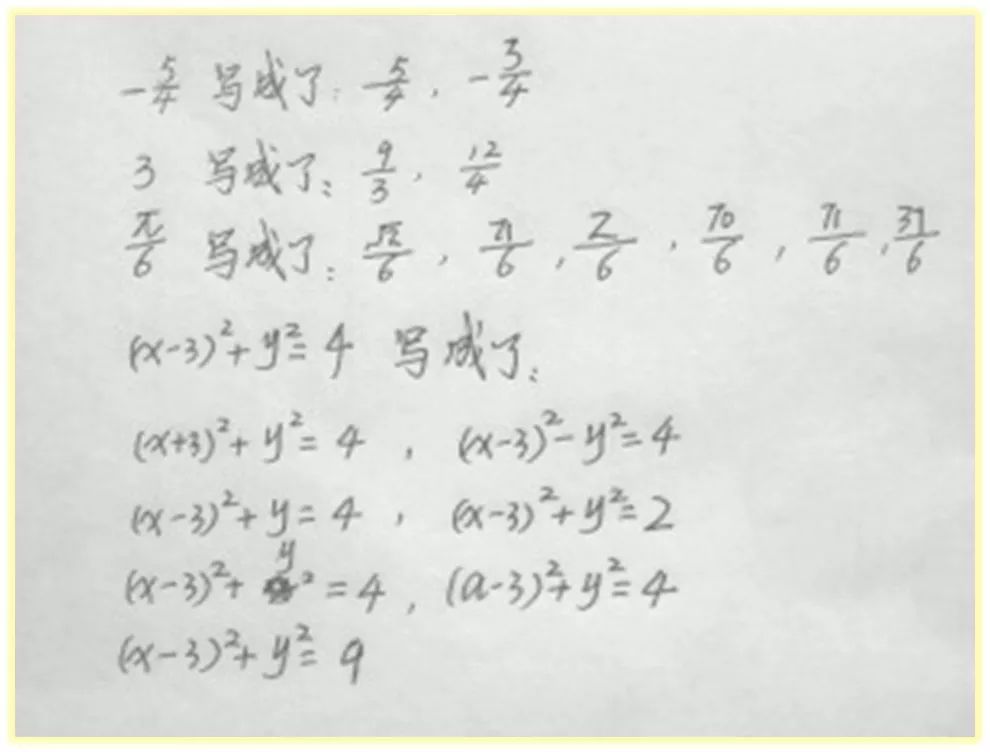 -5/4 写成了: -5/4, -3/4
3 写成了: 9/3, 12/4
π/6 写成了: √π/6, π1/6, Z/6, 70/6, 71/6, 37/6
(x-3)²+y²=4 写成了:
(x+3)²+y²=4, (x-3)²-y²=4
(x-3)²+y=4, (x-3)²+y²=2
(x-3)²+y²=4, (a-3)²+y²=4
(x-3)²+y²=9